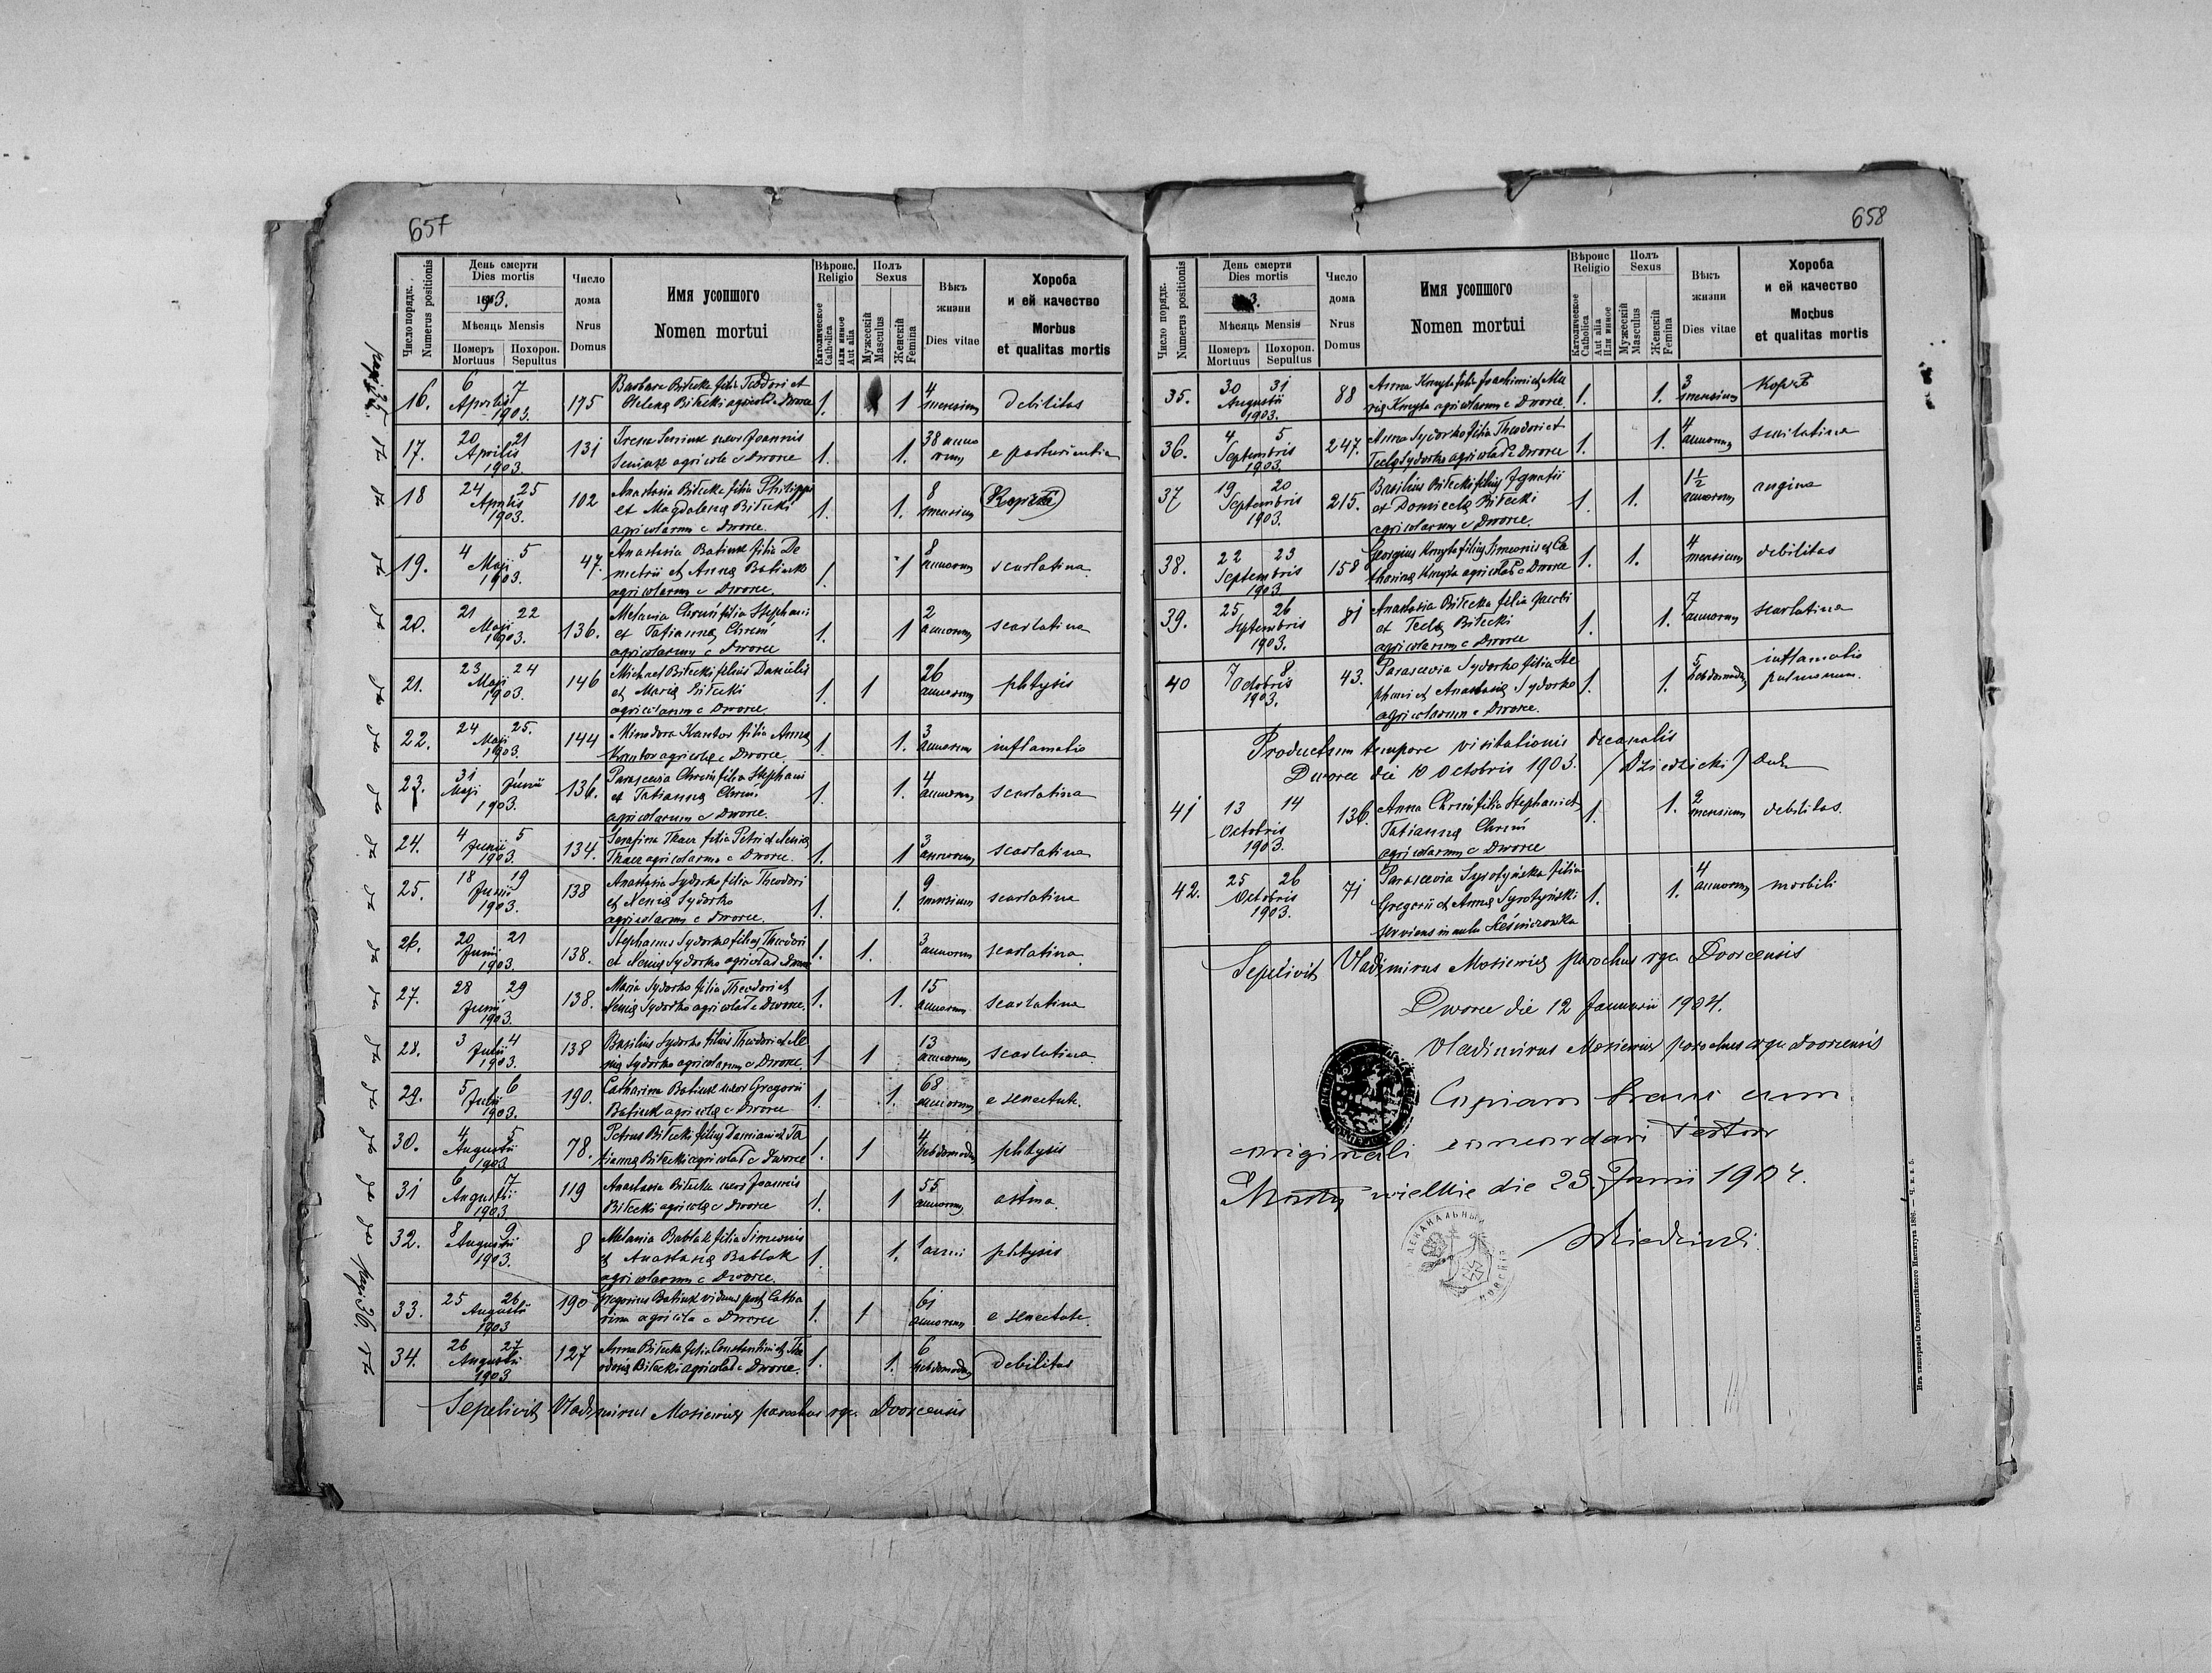 657
Число порядк.
Numerus positionis
День смерти
Dies mortis
1903.
Мѣсяць Mensis
Померъ
Mortuus
Похорон.
Sepultus
Число
дома
Nrus
Domus
Имя усопшого
Nomen mortui
Вѣроис.
Religio
Католическое
Catholica
Или иное
Aut alia
Полъ
Sexus
Мужескій
Masculus
Женскій
Femina
Вѣкъ
жизни
Dies vitae
Хороба
и ей качество
Morbus
et qualitas mortis
16. 6 7 Aprilis 1903. 175 Barbara Biłecka filia Teodori et
Helenę Biłecki agricol. e Dworce 1. 1 4 mensium debilitas
17. 20 21 Aprilis 1903 131 Irena Seniuk uxor Joannis
Seniuk agricole e Dworce 1. 1. 38 annorum e parturientia
18 24 25 Aprilis 1903. 102 Anastasia Biłecka filia Philippi
et Magdalenę Biłecki
agricolarum e Dworce. 1. 1. 8 mensium
19. 4 5 Maji 1903. 47. Anastasia Batiuk filia De
metrii et Annę Batiuk
agricolarum e Dworce. 1. 1 8 annorum scarlatina
20. 21 22 Maji 1903. 136. Melania Chruń filia Stephani
et Tatiannę Chruń
agricolarum e Dworce 1. 1 2 annorum scarlatina
21. 23 24 Maji 1903. 146 Michael Biłecki filius Danielis
et Marię Biłecki
agricolarum e Dworce. 1. 1 26 annorum phtysis
22. 24 25. Maji 1903. 144 Minodora Kantor filia Annę
Kantor agricolę e Dworce. 1. 1. 3 annorum inflamatio
23. 31 Maji Junii 1903. 136. Parascevia Chruń filia Stephani
et Tatiannę Chruń
agricolarum e Dworce. 1. 1. 4 annorum scarlatina
24. 4 5 Junii 1903. 134. Serafina Tkacz filia Petri et Xenię
Tkacz agricolarum e Dworce. 1. 1 3 annorum scarlatina
25. 18 19 Junii 1903. 138 Anastasia Sydorko filia Theodori
et Xenię Sydorko
agricolarum e Dworce. 1. 1. 9 mensium scarlatina
26. 20 21 Junii 1903. 138. Stephanus Sydorko filius Theodori
et Xenię Sydorko agricolar. e Dworce 1. 1. 3 annorum scarlatina.
27. 28 29 Junii 1903. 138. Maria Sydorko filia Theodori et
Xenię Sydorko agricolar. e Dworce. 1. 1. 15 annorum scarlatina
28. 3 4 Julii 1903. 138 Basilius Sydorko filius Theodori et Xe
nię Sydorko agricolarum e Dworce. 1 1 13 annorum scarlatina
29. 5 6 Julii 1903. 190. Catharina Batiuk uxor Gregorii
Batiuk agricolę e Dworce 1. 1. 68 annorum e senectute.
30. 4 5 Augusti 1903 78. Petrus Biłecki filius Damiani et Ta
tiannę Biłecki agricolar. e Dworce 1. 1 4 hebdomadum phtysis
31 6 7 Augusti 1903 119 Anastasia Biłecka uxor Joannis
Biłecki agricolę e Dworce 1. 1 55 annorum astma.
32. 8 9 Augusti 1903. 8 Melania Bablak filia Simeonis
et Anastasię Bablak
agricolarum e Dworce. 1. 1. 1 anni phtysis
33. 25 26 Augusti 1903 190 Gregorius Batiuk viduus post Catha
rina agricola e Dworce 1. 1 61 annorum e senectute.
34. 26 27 Augusti 1903 127 Anna Biłecka filia Constantini et The
odorię Biłecki agricolar. e Dworce. 1. 1. 6 hebdomadum debilitas
Sepelivit Vladimirus Mosiewicz parochus r.gr. Dvorcensis
658
Число порядк.
Numerus positionis
День смерти
Dies mortis
3.
Мѣсяць Mensis
Померъ
Mortuus
Похорон.
Sepultus
Число
дома
Nrus
Domus
Имя усопшого
Nomen mortui
Вѣроис
Religio
Католическое
Catholica
Aut alia
Или иное
Полъ
Sexus
Мужескій
Masculus
Женскій
Femina
Вѣкъ
жизни
Dies vitae
Хороба
и ей качество
Morbus
et qualitas mortis
35. 30 31 Augustii 1903. 88 Anna Kmyta filia Joachimi et Ma
rię Kmyta agricolarum e Dworce. 1. 1. 3 mensium
36. 4 5 Septembris 1903. 247. Anna Sydorko filia Theodori et
Teclę Sydorko agricolar. e Dworce 1. 1. 4 annorum scarlatina
37 19 20 Septembris 1903. 215. Basilius Biłecki filius Ignatii
et Domicelę Biłecki
agricolarum e Dworce. 1. 1. 1½ annorum angina
38. 22 23 Septembris 1903 158 Georgius Kmyta filius Simeonis et Ca
tharinę Kmyta agricolar. e Dworce 1. 1. 4 mensium debilitas
39. 25. 26 Septembris 1903. 81 Anastasia Biłecka filia Jacobi
et Teclę Biłecki
agricolarum e Dworce 1. 1. 7 annorum scarlatina
40 7 8 Octobris 1903. 43. Parascevia Sydorko filia Ste
phani et Anastasię Sydorko
agricolarum e Dworce. 1. 1. 5 hebdomadum inflamatio
pulmonum.
Productum tempore visitationis decanalis
Dworce die 10 Octobris 1903. (Dziedzicki)
41 13 14 Octobris 1903. 136. Anna Chruń filia Stephani et
Tatiannę Chruń
agricolarum e Dworce 1. 1. 2 mensium debilitas.
42. 25 26 Octobris 1903. 71 Parascevia Syrotyńska filia
Gregorii et Annę Syrotyński
serviens in aula Leśniczówka 1. 1. 4 annorum morbili
Sepelivit Vladimirus Mosiewicz parochus r.gr. Dvorcensis
Dworce die 12 Januarii 1904.
Vladimirus Mosiewicz parochus r.gr. Dvorcensis
Copiam hanc cum
originali concordari testor
Mosty wielkie die 23. Junii 1904.
Изъ типографіи Ставропигійского Института 1896.